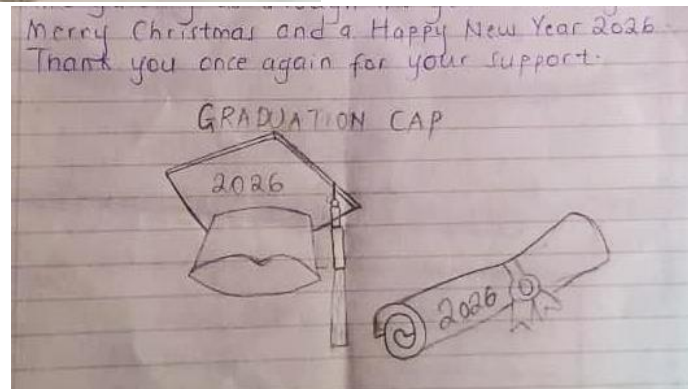 Merry Christmas and a Happy New Year 2026.
Thank you once again for your support.
GRADUATION CAP
2026
2026